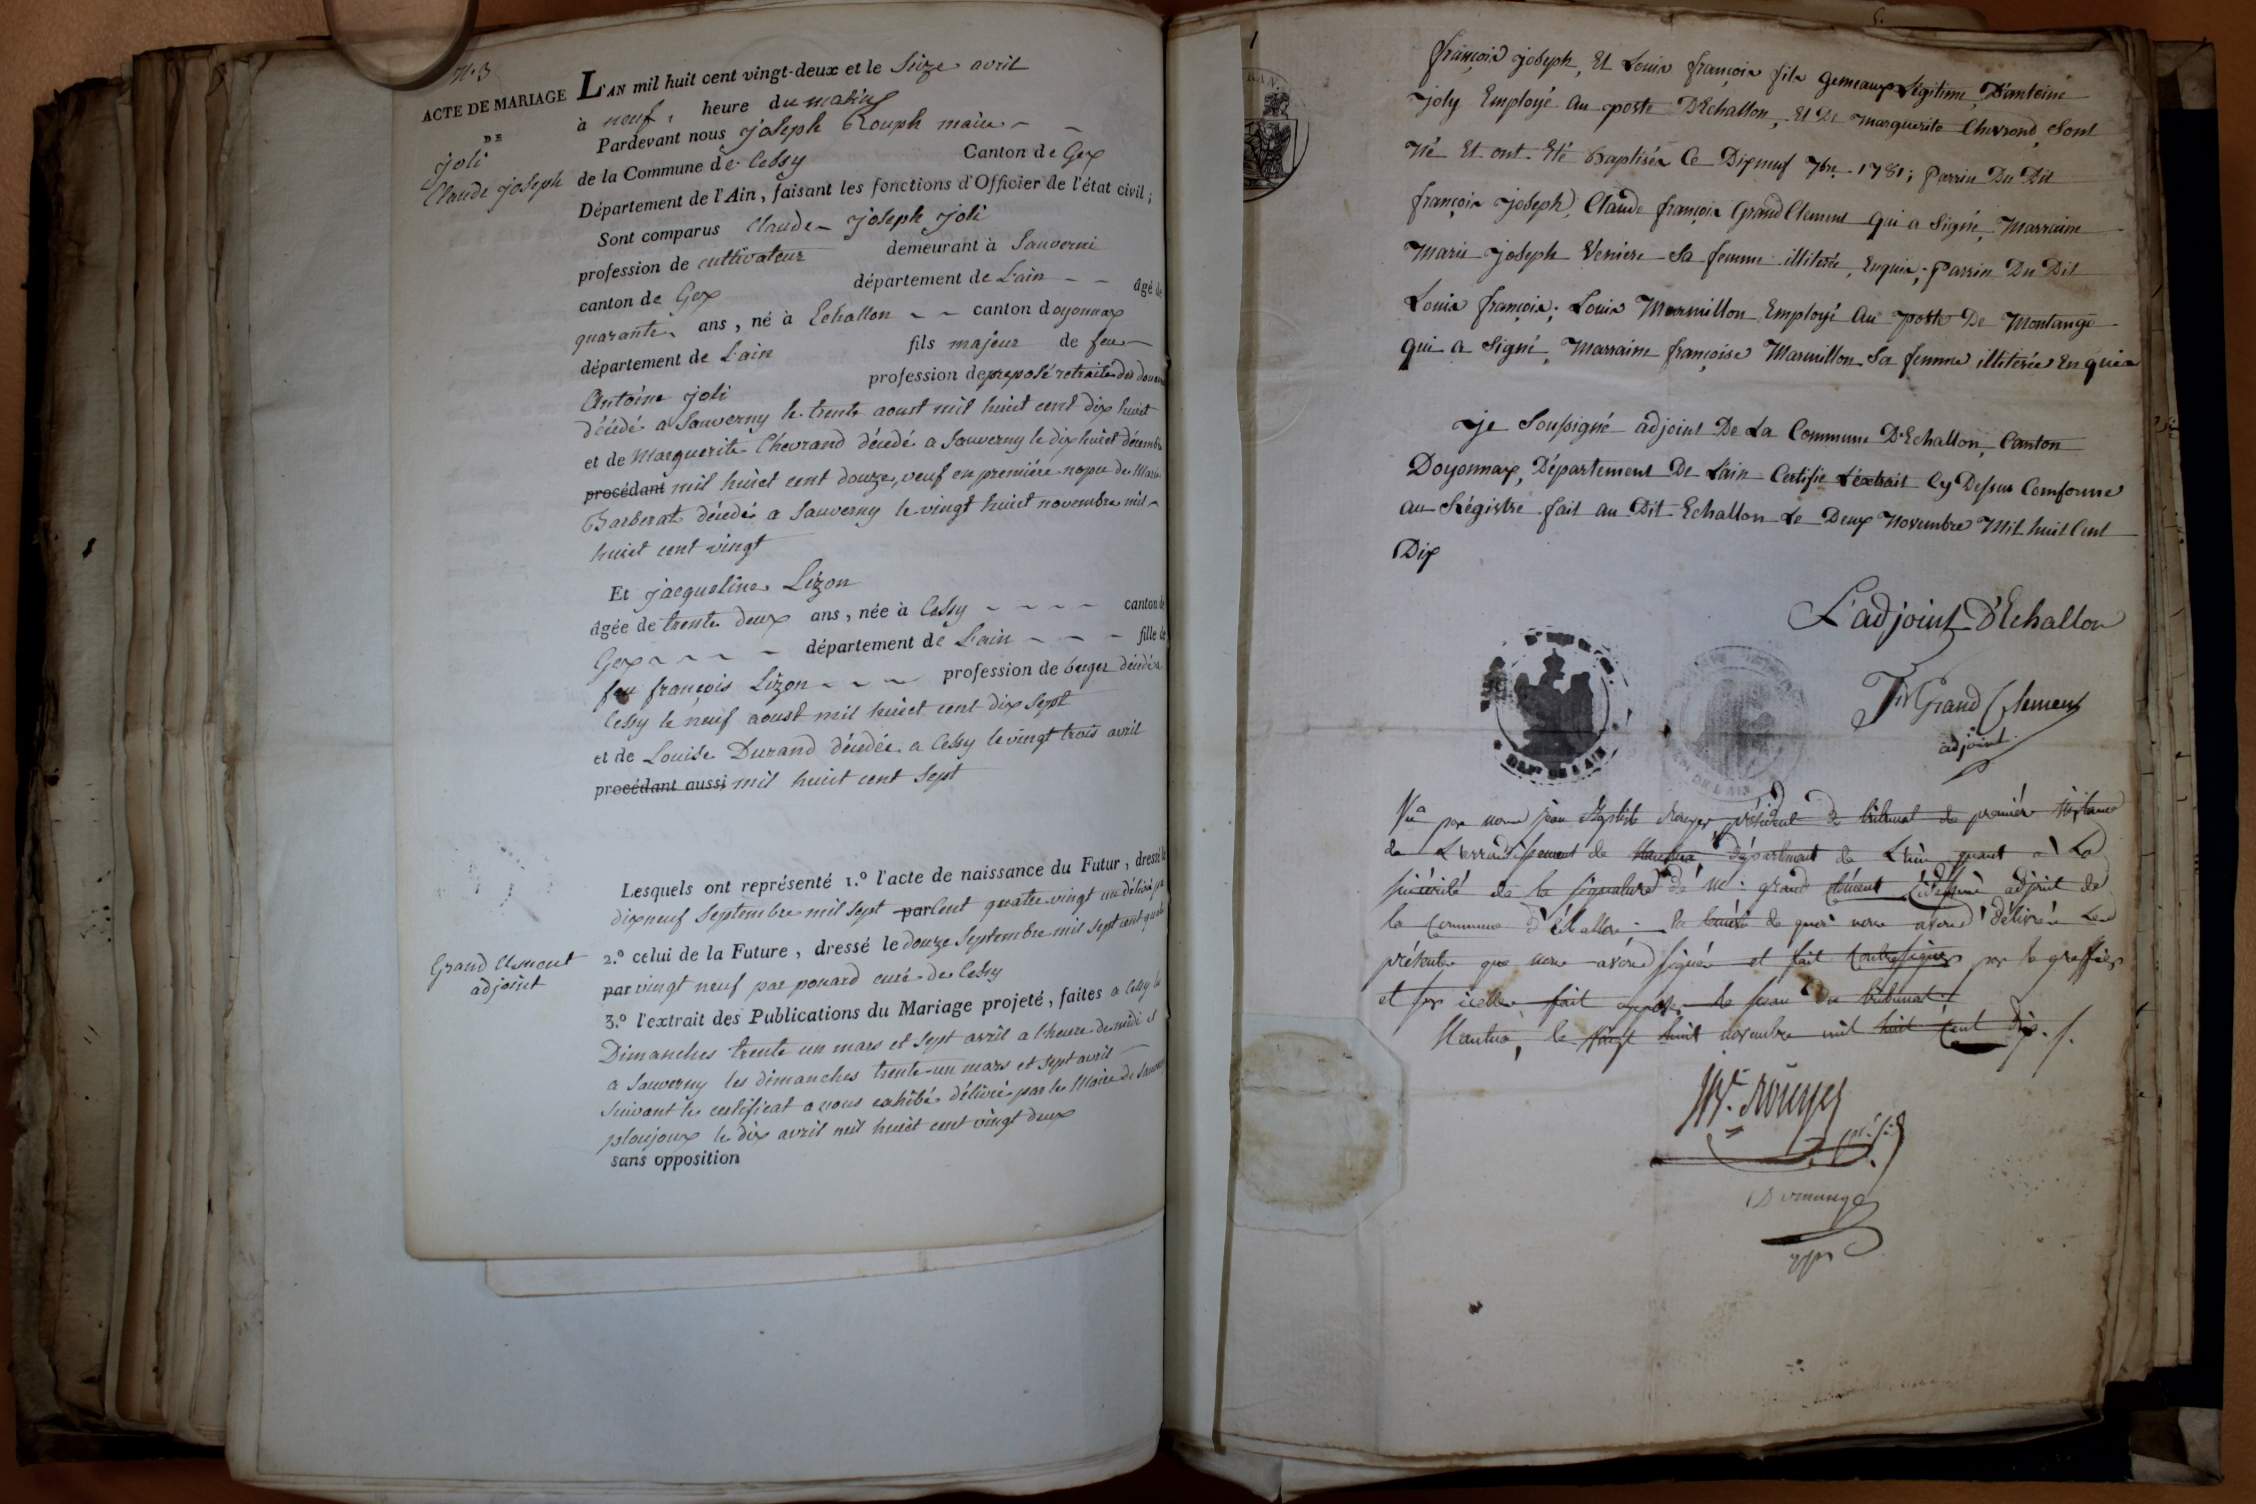 N.° 3
ACTE DE MARIAGE
DE
joli
Claude joseph
L'AN mil huit cent vingt-deux et le Seize avril
à neuf heure du matin
Pardevant nous joseph Rouph maire
de la Commune de Cessy Canton de Gex
Département de l'Ain, faisant les fonctions d'Officier de l'état civil;
Sont comparus Claude joseph joli
profession de cultivateur demeurant à Sauverni
canton de Gex département de L'ain âgé de
quarante ans, né à Echallon canton doyonnax
département de L'ain fils majeur de feu
Antoine joli profession de preposé retraité des douanes
décédé a Sauverny le trente aoust mil huict cent dix huict
et de Marguerite Chevrand décedé a Sauverny le dix huict décembre
procédant mil huict cent douze, veuf en premiére nopce de Marie
Barberat décedé a Sauverny le vingt huict novembre mil
huict cent vingt
Et jacqueline Lizon
âgée de trente deux ans, née à Cessy canton de
Gex département de L'ain fille de
feu françois Lizon profession de berger décédé a
Cessy le neuf aoust mil huict cent dix sept
et de Louise Durand décedée a Cessy le vingt trois avril
procédant aussi mil huict cent sept
Lesquels ont représenté 1.° l'acte de naissance du Futur, dressé le
dixneuf Septembre mil sept par cent quatre vingt un délivré par
Grand Clement
adjoint
2.° celui de la Future, dressé le douze Septembre mil sept cent quatre
par vingt neuf par ponard curé de Cessy
3.° l'extrait des Publications du Mariage projeté, faites a Cessy les
Dimanches trente un mars et sept avril a l'heure de midi et
a Sauverny les dimanches trente-un mars et sept avril
Suivant le certificat a nous exhibé délivré par le Maire de Sauverny
ploujoux le dix avril mil huict cent vingt deux
sans opposition
françois joseph, Et Louis françois fils gemeaux Légitime D'antoine
joly Employé au poste D'Echallon, Et De marguerite Chevrond, Sont
né Et ont Eté Baptisés Ce Dixneuf 7bre 1781; Parrin Du Dit
françois joseph, Claude françois GrandClement qui a Signé, Marraine
Marie joseph Veniere Sa femme illiterée, Enquise; Parrin Du Dit
Louis françois; Louis Marmillon Employé au poste De Montange
qui a Signé, Marraine françoise Marmillon Sa femme illiterée Enquise
Je Soussigné adjoint De La Commune D'Echallon, Canton
Doyonnax, Département De L'ain Certifie L'éxtrait Cy Dessus Comforme
au Régistre fait au Dit Echallon Le Deux Novembre Mil huit Cent
Dix
L'adjoint D'Echallon
Grand Clement
adjoint
DEPT DE L'AIN
Vu par nous jean Baptiste Rouyer président du tribunal de premiér instance
de L'arrondissement de Nantua, département de L'ain quant à La
sincérité de la signature de Mr grand clément adjoint de
la Commune d'échallon de quoi nous avons délivré Les
présentes que nous avons signées et fait contresigner par le greffier
et sur icelles fait apposer le sceau du tribunal
Nantua, le vingt huit novembre mil huit Cent dix.
Rouyer